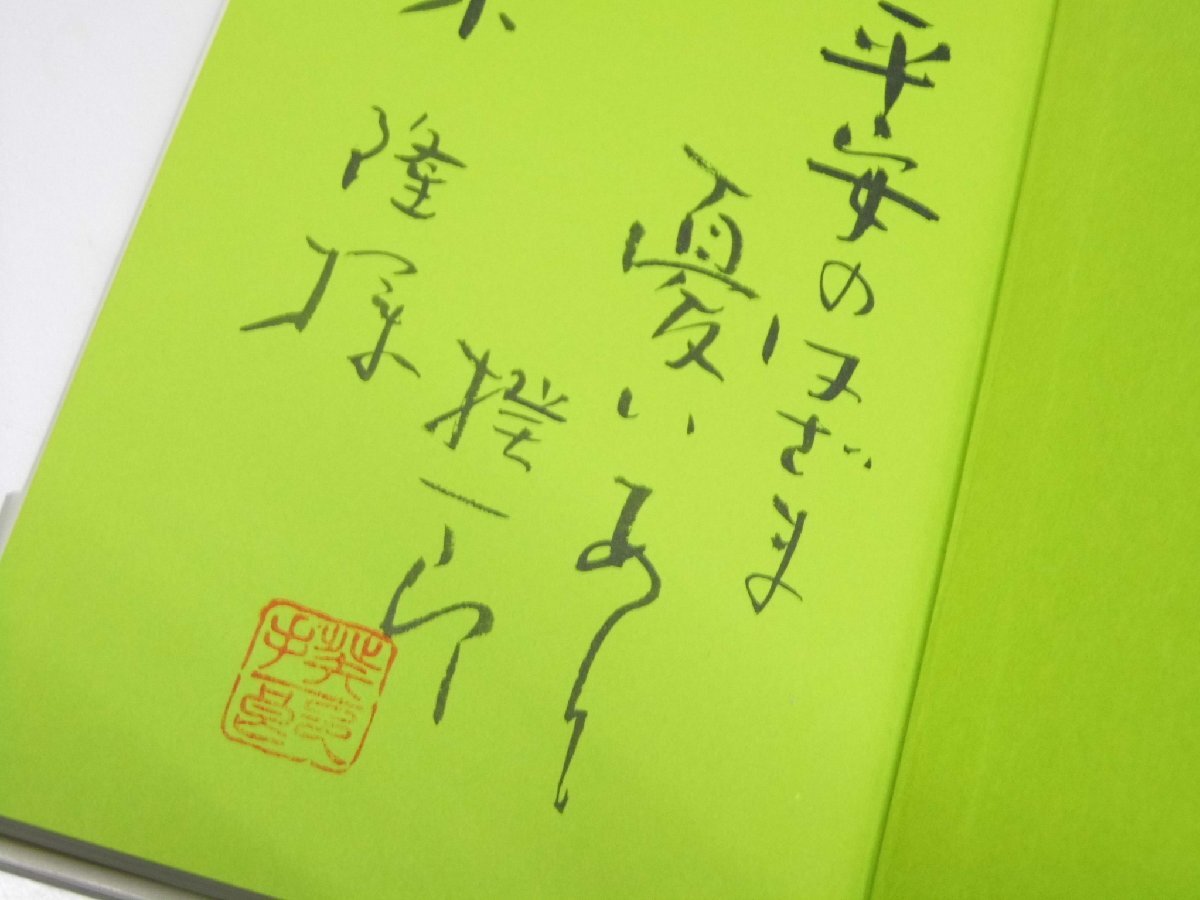 平安のはざま
憂いあり
揆一郎
隆様